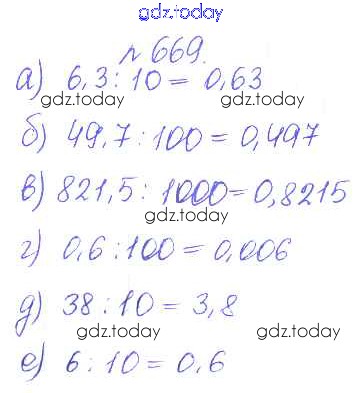 gdz.today
№ 669.
а) 6,3 : 10 = 0,63
gdz.today gdz.today
б) 49,7 : 100 = 0,497
в) 821,5 : 1000 = 0,8215
gdz.today
г) 0,6 : 100 = 0,006
д) 38 : 10 = 3,8
gdz.today gdz.today
е) 6 : 10 = 0,6